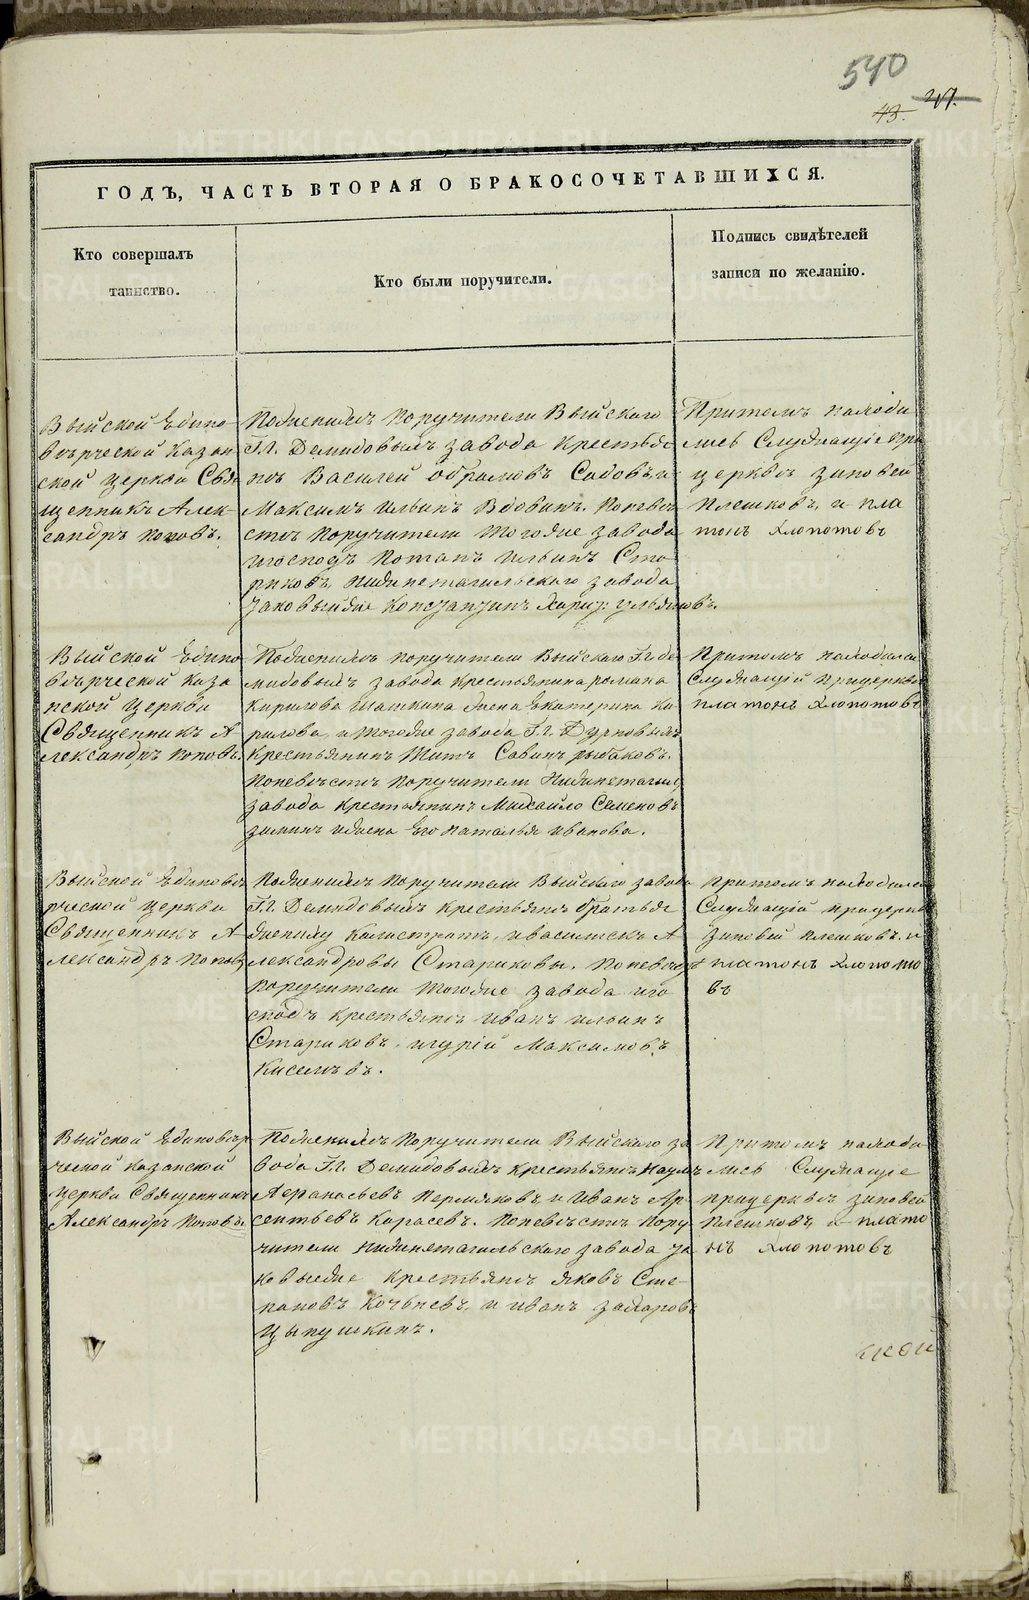 540
43. 47.
ГОДЪ, ЧАСТЬ ВТОРАЯ О БРАКОСОЧЕТАВШИХСЯ.
Кто совершалъ
таинство.
Кто были поручители.
Подпись свидѣтелей
записи по желанію.
Выйской Едино-
вѣрческой Казан
ской церкви Свя
щенникъ Алек-
сандръ Поповъ.
Поженихѣ поручители Выйскаго
Гг. Демидовыхъ завода Крестьяне
Василей Садовъ, и
Максимъ Ильинъ Вдовинъ. Поневѣ
стѣ поручители Тогоже завода
игосподъ Потапъ Ильинъ Ста-
риковъ, Нижнетагильскаго завода
Таковыйже Константинъ Ульяновъ.
Притомъ находи
лись Служащіе при
церквѣ Зиновей
Плешковъ, и Пла
тонъ Хлопотовъ
Выйской Едино
вѣрческой Каза
нской церкви
Священникъ А
лександръ Поповъ.
Поженихѣ поручители Выйскаго Гг. Де
мидовыхъ завода крестьянина романа
Кирилова Шашкина Жена Екатерина Ки
рилова, и Тогоже завода Гг. Дурновыхъ
Крестьянинъ Титъ Савинъ рыбаковъ.
Поневѣстѣ поручители Нижнетагил
завода крестьянинъ Михайло Семеновъ
зиминъ ижена Его Наталья Иванова.
Притомъ находился
Служащій прицерквѣ
платонъ Хлопотовъ
Выйской Единовѣ
рческой церкви
Священникъ А
лександръ Поповъ
Поженихѣ поручители Выйскаго завода
Гг. Демидовыхъ крестьяне братья
жениху Калистратъ, ивасилискъ А
лександровы Стариковы. Поневѣстѣ
поручители Тогоже завода иго
сподъ крестьяне Иванъ Ильинъ
Стариковъ, игурій Максимовъ
Киселевъ.
притомъ находились
Служащій прицеркв
Зиновей Плешковъ. и
платонъ Хлопото
въ
Выйской Единовѣр
ческой казанской
церкви Священникъ
Александръ Поповъ
Поженихѣ Поручители Выйскаго за
вода Гг. Демидовыхъ крестьяне Наумъ
Афанасьевъ Пермяковъ, и Иванъ Ар
сентьевъ Карасевъ. Поневѣстѣ Пору
чители Нижнетагильскаго завода Та
ковыеже крестьяне яковъ Сте-
пановъ и иванъ захаровъ
Цыпушкинъ.
Притомъ находи
лись Служащіе
прицерквѣ зиновей
Плешковъ, и плато
нъ Хлопотовъ
METRIKI.GASO-URAL.RU